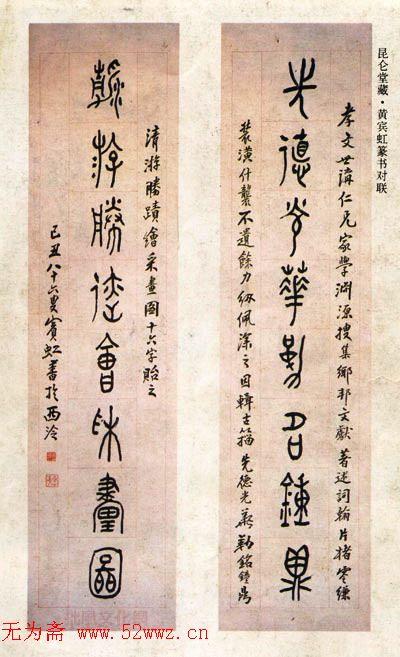 昆仑堂藏·黄宾虹篆书对联
孝文世講仁兄家學淵源搜集鄉邦文獻著述詞翰片楮零縑
先德光華勒名鐘鼎
裝潢什襲不遺餘力紉佩深之因輯古籀先德光華勒銘鐘鼎
清游勝蹟繪采畫圖十六字貽之
游勝會采畫圖
己丑八十六叟賓虹書於西泠
无为斋 www.52wwz.cn